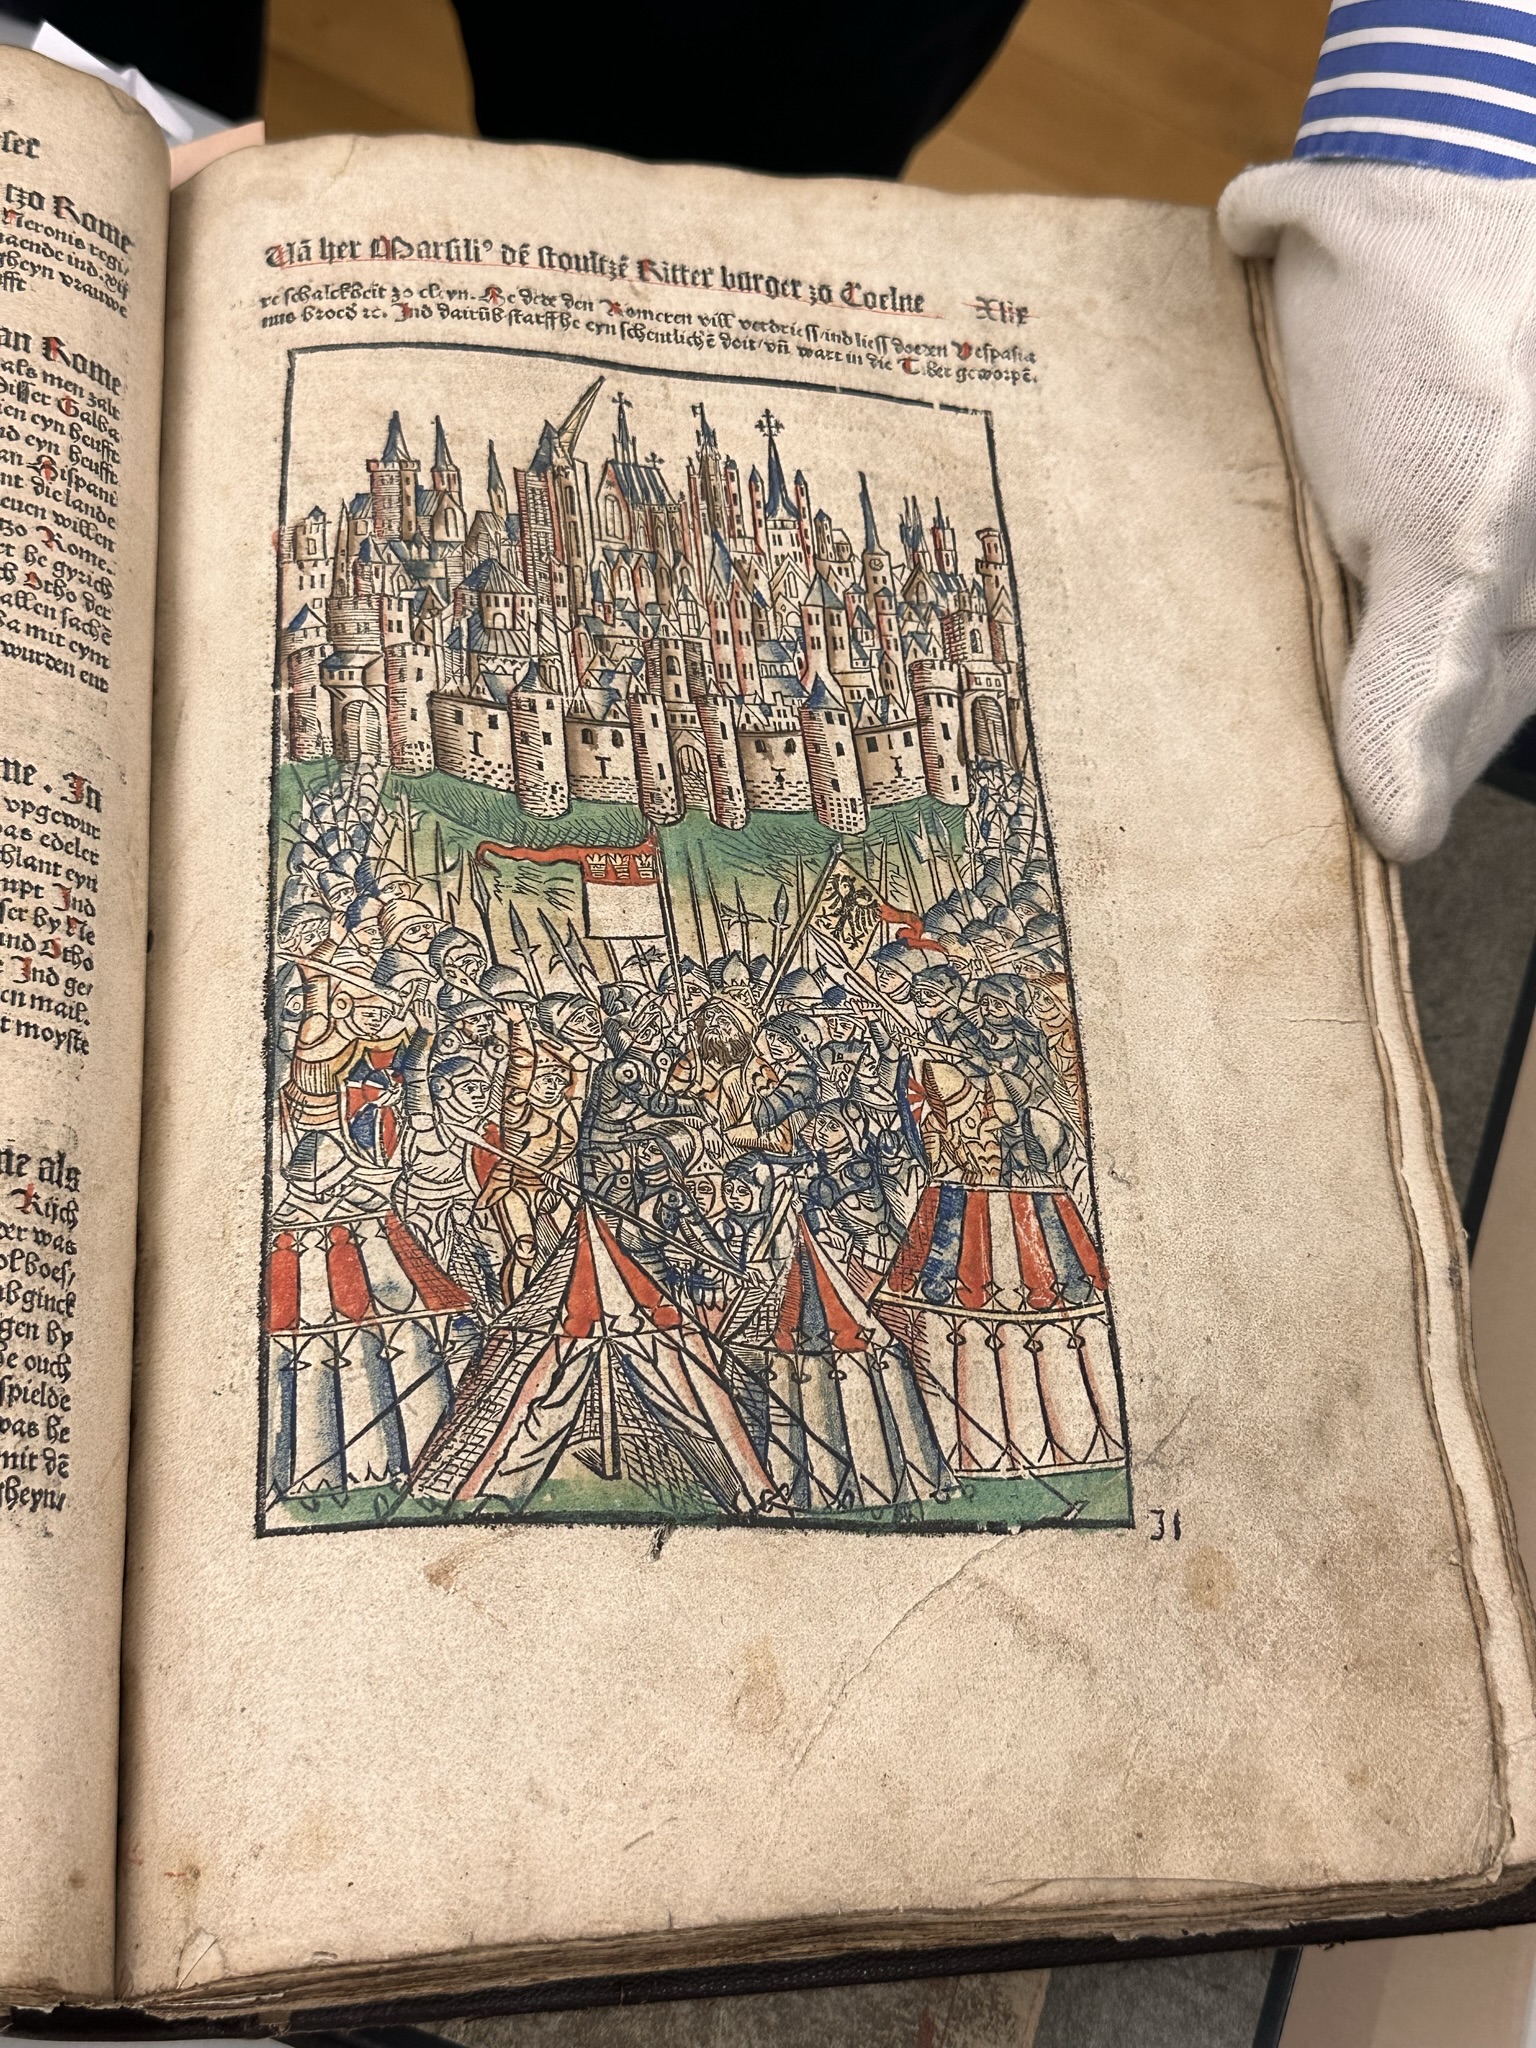 ser
tzo Rome
Neronis regi/
aende ind. vij
gheyn vrauwe
fft.
an Rome
als men zalt
Disser Galba
ien eyn heufft
nd eyn heufft
an Hispani
nt die lande
euen willen
tzo Rome.
et he gyrich
ch Otho der
allen sachē
a mit eym
wurden ent
me . In
vpgewur
as edeler
hlant eyn
mpt Ind
ser by Ne
ind Otho
Ind ge/
en mail.
t moyste
ne als
Rijch
er was
ol boes/
abginck
gen by
he ouch
spielde
was he
mit dē
gheyn/
Vā her Marsiliꝰ dē stoultzē Ritter burger zo Coelne Xlix
re schalckheit zo cleyn. He dede den Romeren vill verdriess/ind liess doeen Vespasia
nus broed' ꝛc. Ind dairūb starff he eyn schentlichē doit/vñ wart in die Tiber geworpē.
J1